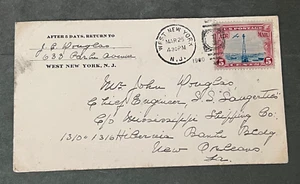 AFTER 5 DAYS, RETURN TO
J. C. Douglas
633 Park Avenue
WEST NEW YORK, N. J.
WEST NEW YORK
MAR 25
4 30 PM
N.J.
U.S. POSTAGE
AIR MAIL
5 5
Mr. John Douglas
Chief Engineer S.S. "Saugerties"
C/o Mississippi Shipping Co.
1310-1316 Hibernia Bank Bldg
New Orleans
La.